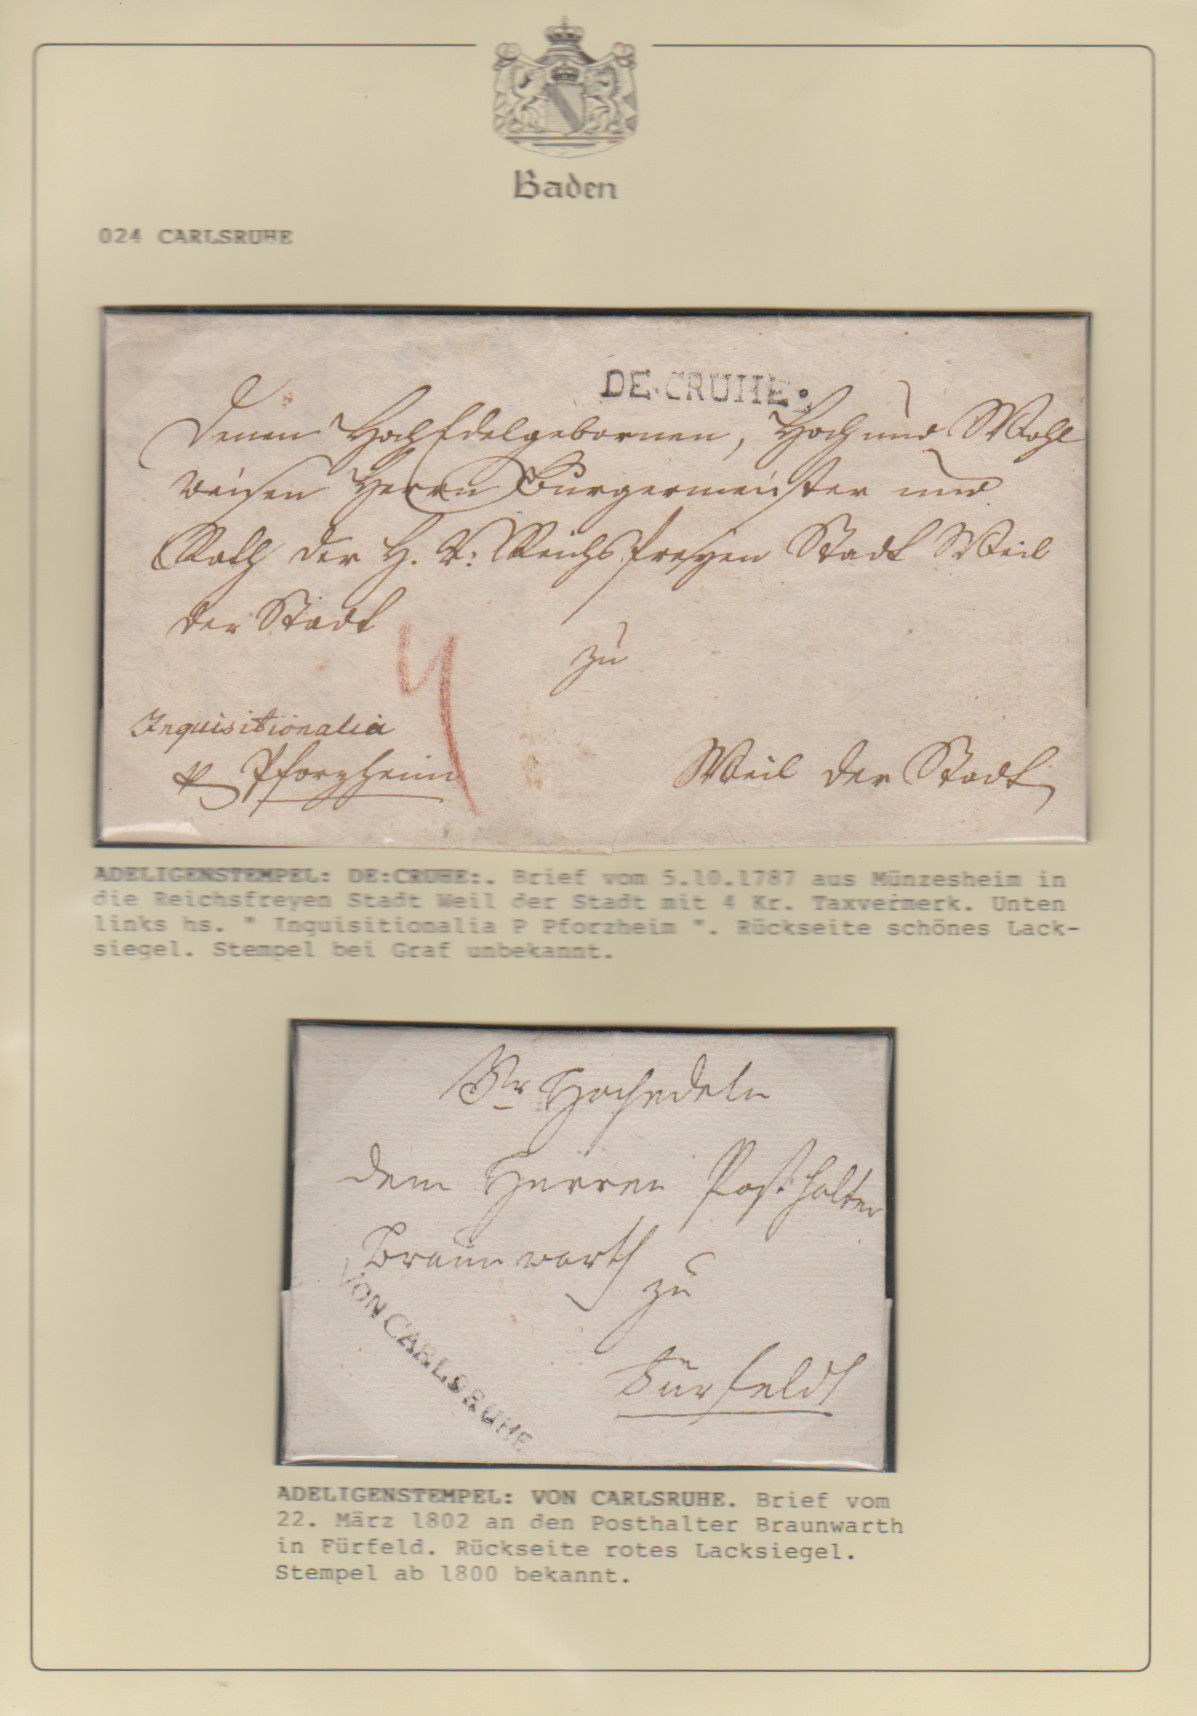 Baden
024 CARLSRUHE
DE.CRUHE:
Denen HochEdelgebornen, Hoch und Wohl
weisen Herrn Burgermeister und
Rath der H. R: Reichs freyen Stadt Weil
der Stadt
zu
4
Inquisitionalia
p Pforzheim
Weil der Stadt
ADELIGENSTEMPEL: DE:CRUHE:. Brief vom 5.10.1787 aus Münzesheim in
die Reichsfreyen Stadt Weil der Stadt mit 4 Kr. Taxvermerk. Unten
links hs. " Inquisitionalia P Pforzheim ". Rückseite schönes Lack-
siegel. Stempel bei Graf unbekannt.
Sr Hochedeln
dem Herren Posthalter
Braunwarth
zu
VON CARLSRUHE
Fürfeldt
ADELIGENSTEMPEL: VON CARLSRUHE. Brief vom
22. März 1802 an den Posthalter Braunwarth
in Fürfeld. Rückseite rotes Lacksiegel.
Stempel ab 1800 bekannt.